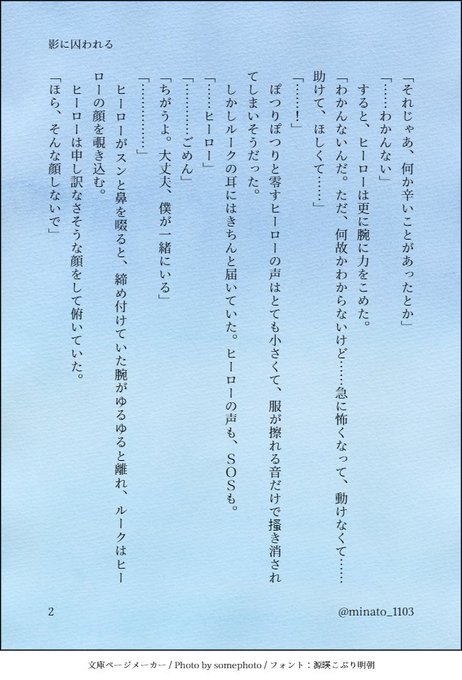 影に囚われる
「それじゃあ、何か辛いことがあったとか」
「……わかんない」
すると、ヒーローは更に腕に力をこめた。
「わかんないんだ。ただ、何故かわからないけど……急に怖くなって、動けなくて……
助けて、ほしくて……」
「……！」
ぽつりぽつりと零すヒーローの声はとても小さくて、服が擦れる音だけで掻き消され
てしまいそうだった。
しかしルークの耳にはきちんと届いていた。ヒーローの声も、ＳＯＳも。
「……ヒーロー」
「…………ごめん」
「ちがうよ。大丈夫、僕が一緒にいる」
「……………」
ヒーローがスンと鼻を啜ると、締め付けていた腕がゆるゆると離れ、ルークはヒー
ローの顔を覗き込む。
ヒーローは申し訳なさそうな顔をして俯いていた。
「ほら、そんな顔しないで」
2
@minato_1103
文庫ページメーカー / Photo by somephoto / フォント：源暎こぶり明朝